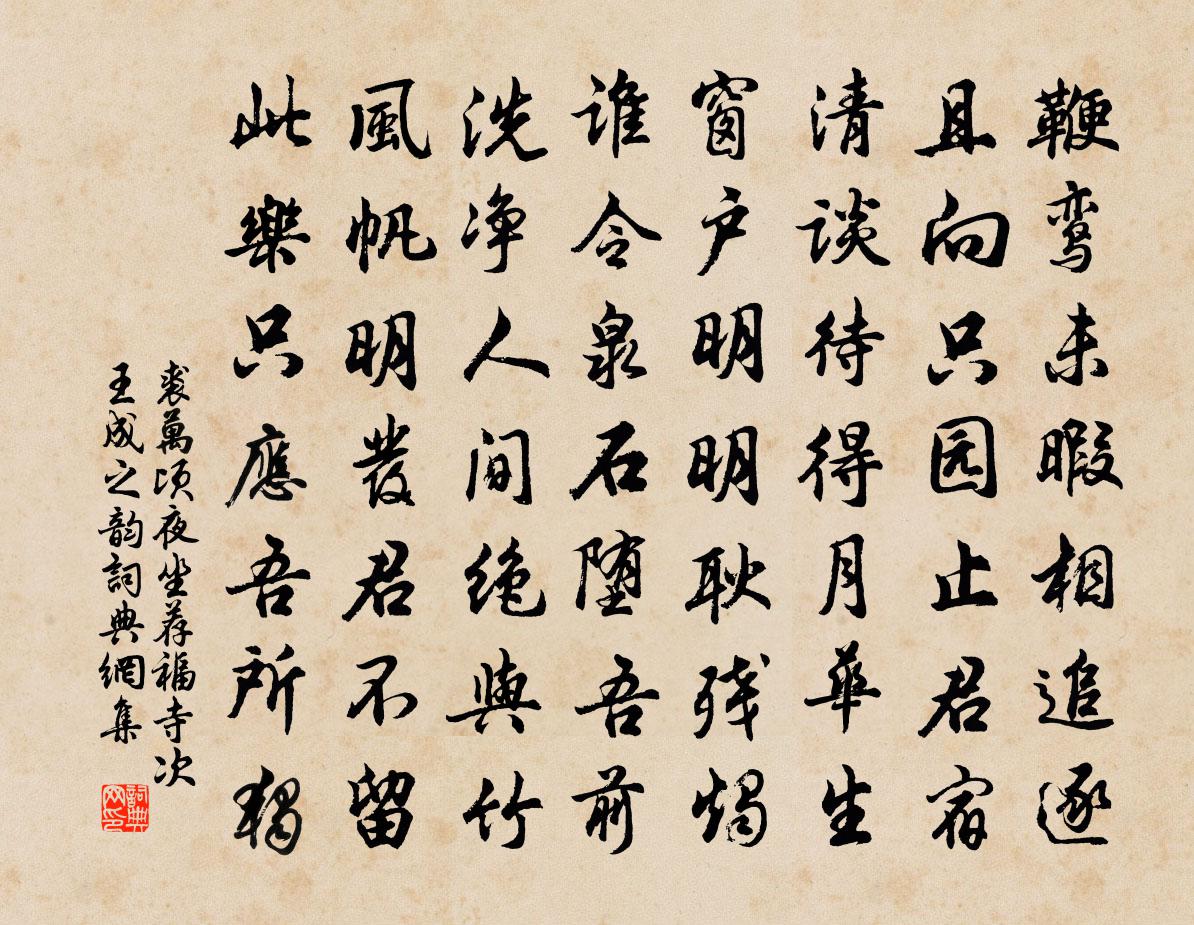 鞭鸾未暇相追逐
且向只园止君宿
清谈待得月華生
窗户明明耿残燭
谁令泉石堕吾前
洗净人间绝與竹
風帆明發君不留
此樂只應吾所獨
裘萬頃夜坐荐福寺次
王成之韵詞典網集
詞典网印